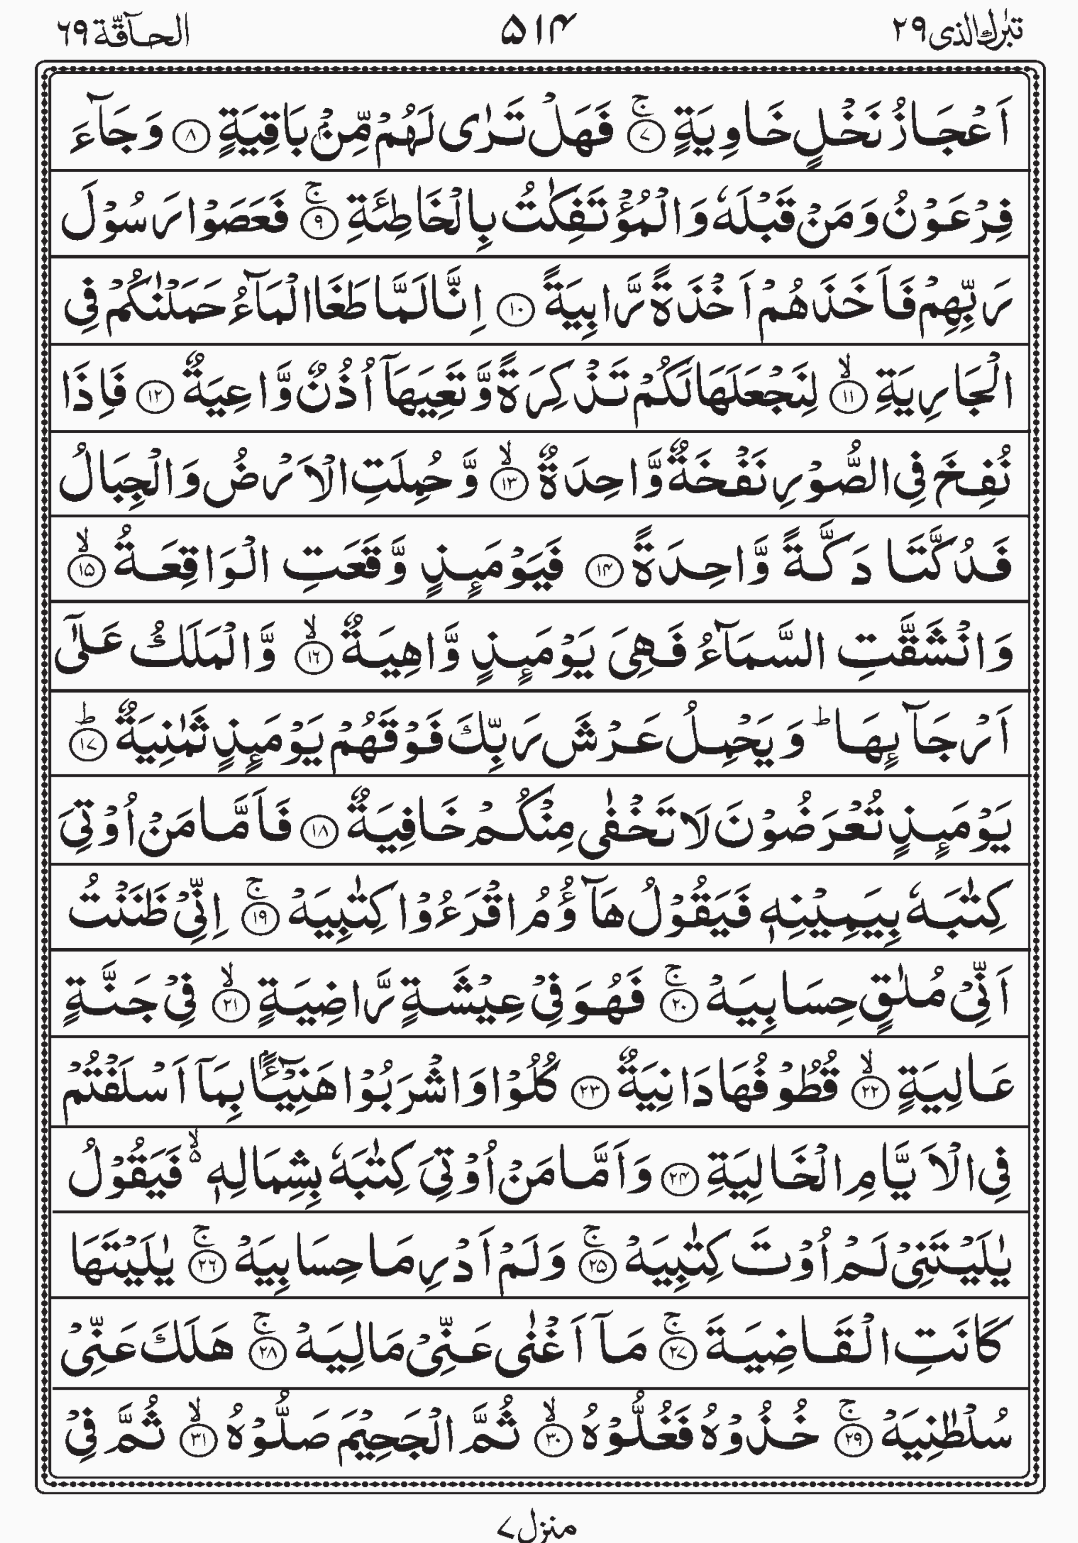 تبٰرك الذی ٢٩
۵۱۴
الحآقّة ٦٩
اَعْجَازُ نَخْلٍ خَاوِيَةٍ ۚ﴿۷﴾ فَهَلْ تَرٰى لَهُمْ مِّنْۢ بَاقِيَةٍ ﴿۸﴾ وَجَآءَ
فِرْعَوْنُ وَمَنْ قَبْلَهٗ وَالْمُؤْتَفِكٰتُ بِالْخَاطِئَةِ ۚ﴿۹﴾ فَعَصَوْا رَسُوْلَ
رَبِّهِمْ فَاَخَذَهُمْ اَخْذَةً رَّابِيَةً ﴿۱۰﴾ اِنَّا لَمَّا طَغَا الْمَآءُ حَمَلْنٰكُمْ فِى
الْجَارِيَةِ ۙ﴿۱۱﴾ لِنَجْعَلَهَا لَكُمْ تَذْكِرَةً وَّتَعِيَهَاۤ اُذُنٌ وَّاعِيَةٌ ﴿۱۲﴾ فَاِذَا
نُفِخَ فِى الصُّوْرِ نَفْخَةٌ وَّاحِدَةٌ ۙ﴿۱۳﴾ وَّحُمِلَتِ الْاَرْضُ وَالْجِبَالُ
فَدُكَّتَا دَكَّةً وَّاحِدَةً ﴿۱۴﴾ فَيَوْمَئِذٍ وَّقَعَتِ الْوَاقِعَةُ ۙ﴿۱۵﴾
وَانْشَقَّتِ السَّمَآءُ فَهِىَ يَوْمَئِذٍ وَّاهِيَةٌ ۙ﴿۱۶﴾ وَّالْمَلَكُ عَلٰٓى
اَرْجَآئِهَا ؕ وَيَحْمِلُ عَرْشَ رَبِّكَ فَوْقَهُمْ يَوْمَئِذٍ ثَمٰنِيَةٌ ؕ﴿۱۷﴾
يَوْمَئِذٍ تُعْرَضُوْنَ لَا تَخْفٰى مِنْكُمْ خَافِيَةٌ ﴿۱۸﴾ فَاَمَّا مَنْ اُوْتِىَ
كِتٰبَهٗ بِيَمِيْنِهٖ فَيَقُوْلُ هَآؤُمُ اقْرَءُوْا كِتٰبِيَهْ ۚ﴿۱۹﴾ اِنِّىْ ظَنَنْتُ
اَنِّىْ مُلٰقٍ حِسَابِيَهْ ۚ﴿۲۰﴾ فَهُوَ فِىْ عِيْشَةٍ رَّاضِيَةٍ ۙ﴿۲۱﴾ فِىْ جَنَّةٍ
عَالِيَةٍ ۙ﴿۲۲﴾ قُطُوْفُهَا دَانِيَةٌ ﴿۲۳﴾ كُلُوْا وَاشْرَبُوْا هَنِيْٓئًۢا بِمَاۤ اَسْلَفْتُمْ
فِى الْاَيَّامِ الْخَالِيَةِ ﴿۲۴﴾ وَاَمَّا مَنْ اُوْتِىَ كِتٰبَهٗ بِشِمَالِهٖ ۙ۬ فَيَقُوْلُ
يٰلَيْتَنِىْ لَمْ اُوْتَ كِتٰبِيَهْ ۚ﴿۲۵﴾ وَلَمْ اَدْرِ مَا حِسَابِيَهْ ۚ﴿۲۶﴾ يٰلَيْتَهَا
كَانَتِ الْقَاضِيَةَ ۚ﴿۲۷﴾ مَاۤ اَغْنٰى عَنِّىْ مَالِيَهْ ۚ﴿۲۸﴾ هَلَكَ عَنِّىْ
سُلْطٰنِيَهْ ۚ﴿۲۹﴾ خُذُوْهُ فَغُلُّوْهُ ۙ﴿۳۰﴾ ثُمَّ الْجَحِيْمَ صَلُّوْهُ ۙ﴿۳۱﴾ ثُمَّ فِىْ
منزل ۷